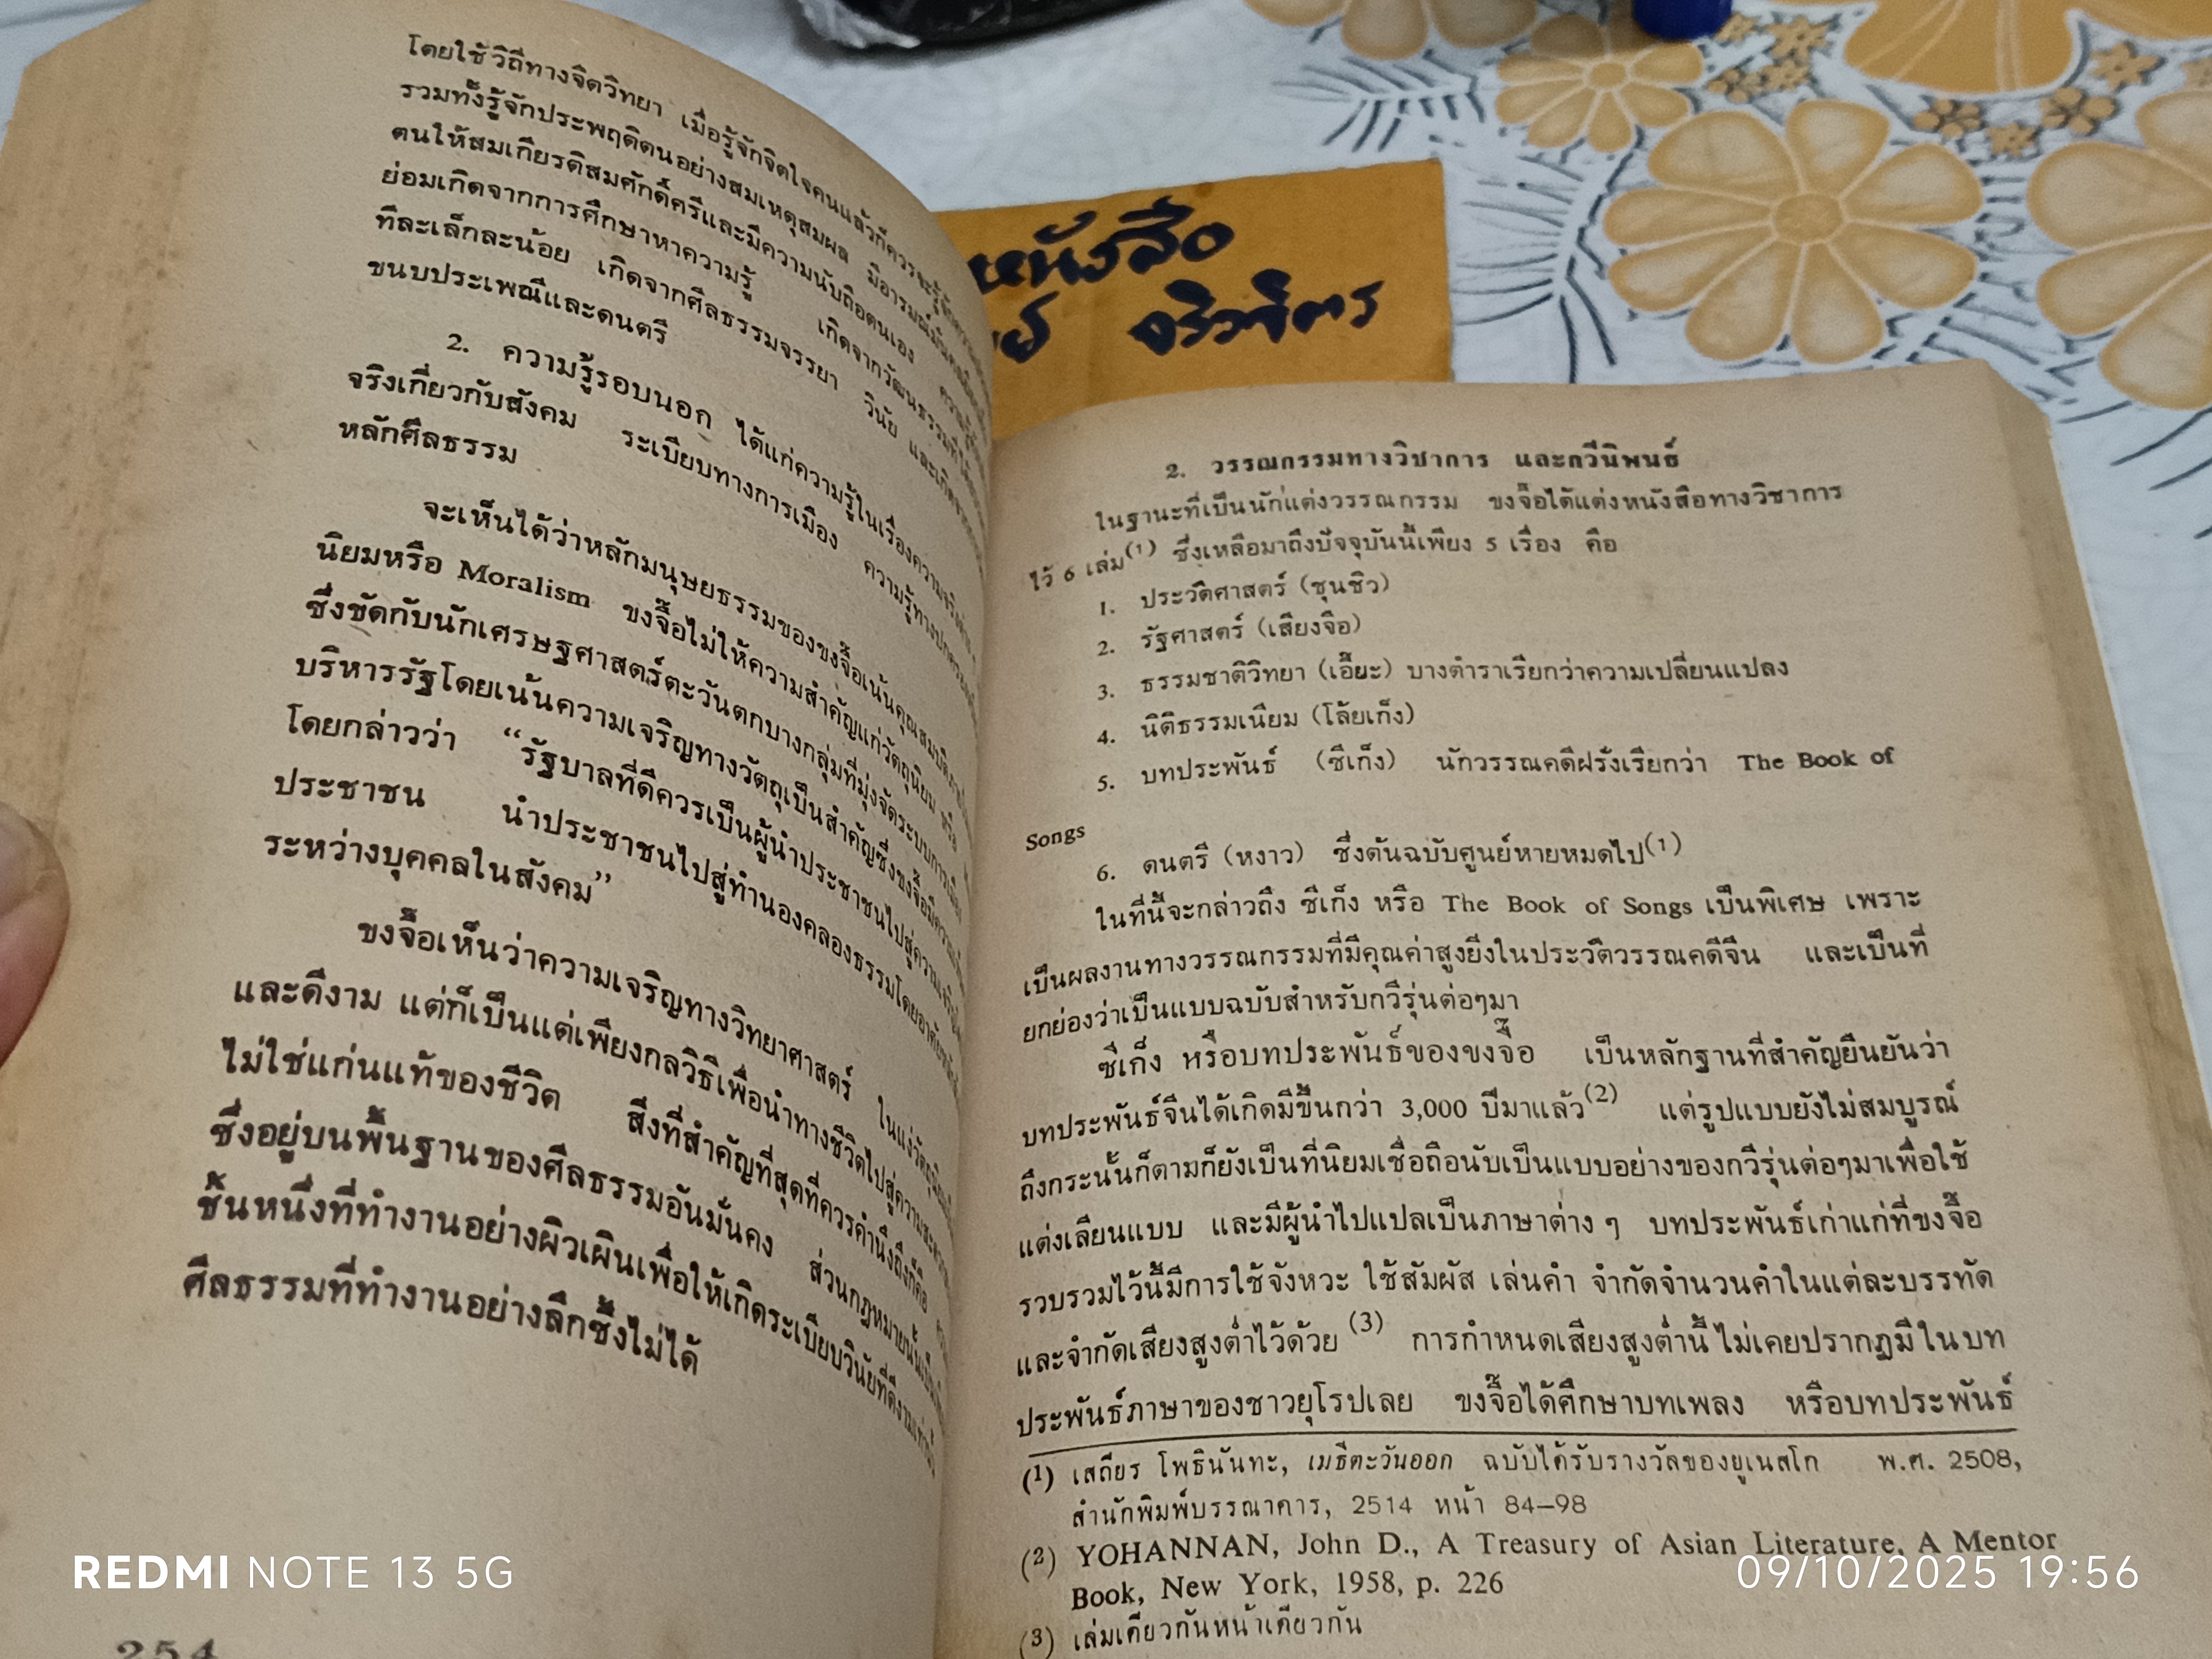 โดยใช้วิถีทางจิตวิทยา เมื่อรู้จักจิตใจคนแล้วก็ควรจะรู้จัก
รวมทั้งรู้จักประพฤติตนอย่างสมเหตุสมผล มีอารมณ์มั่นคง
ตนให้สมเกียรติสมศักดิ์ศรีและมีความนับถือตนเอง
ย่อมเกิดจากการศึกษาหาความรู้ เกิดจากวัฒนธรรมที่ได้
ทีละเล็กละน้อย เกิดจากศีลธรรมจรรยา วินัย และเกิดจาก
ขนบประเพณีและดนตรี
2. ความรู้รอบนอก ได้แก่ความรู้ในเรื่องความจริง
จริงเกี่ยวกับสังคม ระเบียบทางการเมือง ความรู้ทาง
หลักศีลธรรม
จะเห็นได้ว่าหลักมนุษยธรรมของขงจื๊อเน้นคุณสมบัติ
นิยมหรือ Moralism ขงจื๊อไม่ให้ความสำคัญแก่วัตถุนิยม
ซึ่งขัดกับนักเศรษฐศาสตร์ตะวันตกบางกลุ่มที่มุ่งจัดระบบการเมือง
บริหารรัฐโดยเน้นความเจริญทางวัตถุเป็นสำคัญซึ่งขงจื๊อมีความเห็น
โดยกล่าวว่า “รัฐบาลที่ดีควรเป็นผู้นำประชาชนไปสู่ความเจริญ
ประชาชน นำประชาชนไปสู่ทำนองคลองธรรมโดยอาศัย
ระหว่างบุคคลในสังคม”
ขงจื๊อเห็นว่าความเจริญทางวิทยาศาสตร์ ในแง่วัตถุนิยม
และดีงาม แต่ก็เป็นแต่เพียงกลวิธีเพื่อนำทางชีวิตไปสู่ความ
ไม่ใช่แก่นแท้ของชีวิต สิ่งที่สำคัญที่สุดที่ควรคำนึงถึงก็คือ
ซึ่งอยู่บนพื้นฐานของศีลธรรมอันมั่นคง ส่วนกฎหมายนั้นเป็น
ชั้นหนึ่งที่ทำงานอย่างผิวเผินเพื่อให้เกิดระเบียบวินัยที่ดีงามเท่านั้น
ศีลธรรมที่ทำงานอย่างลึกซึ้งไม่ได้
254
หนังสือ
จริวิจิตร
2. วรรณกรรมทางวิชาการ และกวีนิพนธ์
ในฐานะที่เป็นนักแต่งวรรณกรรม ขงจื๊อได้แต่งหนังสือทางวิชาการ
ไว้ 6 เล่ม(1) ซึ่งเหลือมาถึงปัจจุบันนี้เพียง 5 เรื่อง คือ
1. ประวัติศาสตร์ (ชุนชิว)
2. รัฐศาสตร์ (เสียงจือ)
3. ธรรมชาติวิทยา (เอี๊ยะ) บางตำราเรียกว่าความเปลี่ยนแปลง
4. นิติธรรมเนียม (โล้ยเก็ง)
5. บทประพันธ์ (ซีเก็ง) นักวรรณคดีฝรั่งเรียกว่า The Book of
Songs
6. ดนตรี (หงาว) ซึ่งต้นฉบับศูนย์หายหมดไป(1)
ในที่นี้จะกล่าวถึง ซีเก็ง หรือ The Book of Songs เป็นพิเศษ เพราะ
เป็นผลงานทางวรรณกรรมที่มีคุณค่าสูงยิ่งในประวัติวรรณคดีจีน และเป็นที่
ยกย่องว่าเป็นแบบฉบับสำหรับกวีรุ่นต่อๆมา
ซีเก็ง หรือบทประพันธ์ของขงจื๊อ เป็นหลักฐานที่สำคัญยืนยันว่า
บทประพันธ์จีนได้เกิดมีขึ้นกว่า 3,000 ปีมาแล้ว(2) แต่รูปแบบยังไม่สมบูรณ์
ถึงกระนั้นก็ตามก็ยังเป็นที่นิยมเชื่อถือนับเป็นแบบอย่างของกวีรุ่นต่อๆมาเพื่อใช้
แต่งเลียนแบบ และมีผู้นำไปแปลเป็นภาษาต่าง ๆ บทประพันธ์เก่าแก่ที่ขงจื๊อ
รวบรวมไว้นี้มีการใช้จังหวะ ใช้สัมผัส เล่นคำ จำกัดจำนวนคำในแต่ละบรรทัด
และจำกัดเสียงสูงต่ำไว้ด้วย (3) การกำหนดเสียงสูงต่ำนี้ ไม่เคยปรากฏมี ในบท
ประพันธ์ภาษาของชาวยุโรปเลย ขงจื๊อได้ศึกษาบทเพลง หรือบทประพันธ์
(1) เสถียร โพธินันทะ, เมธีตะวันออก ฉบับได้รับรางวัลของยูเนสโก พ.ศ. 2508,
สำนักพิมพ์บรรณาคาร, 2514 หน้า 84–98
(2) YOHANNAN, John D., A Treasury of Asian Literature, A Mentor
Book, New York, 1958, p. 226
(3) เล่มเดียวกันหน้าเดียวกัน
REDMI NOTE 13 5G
09/10/2025 19:56